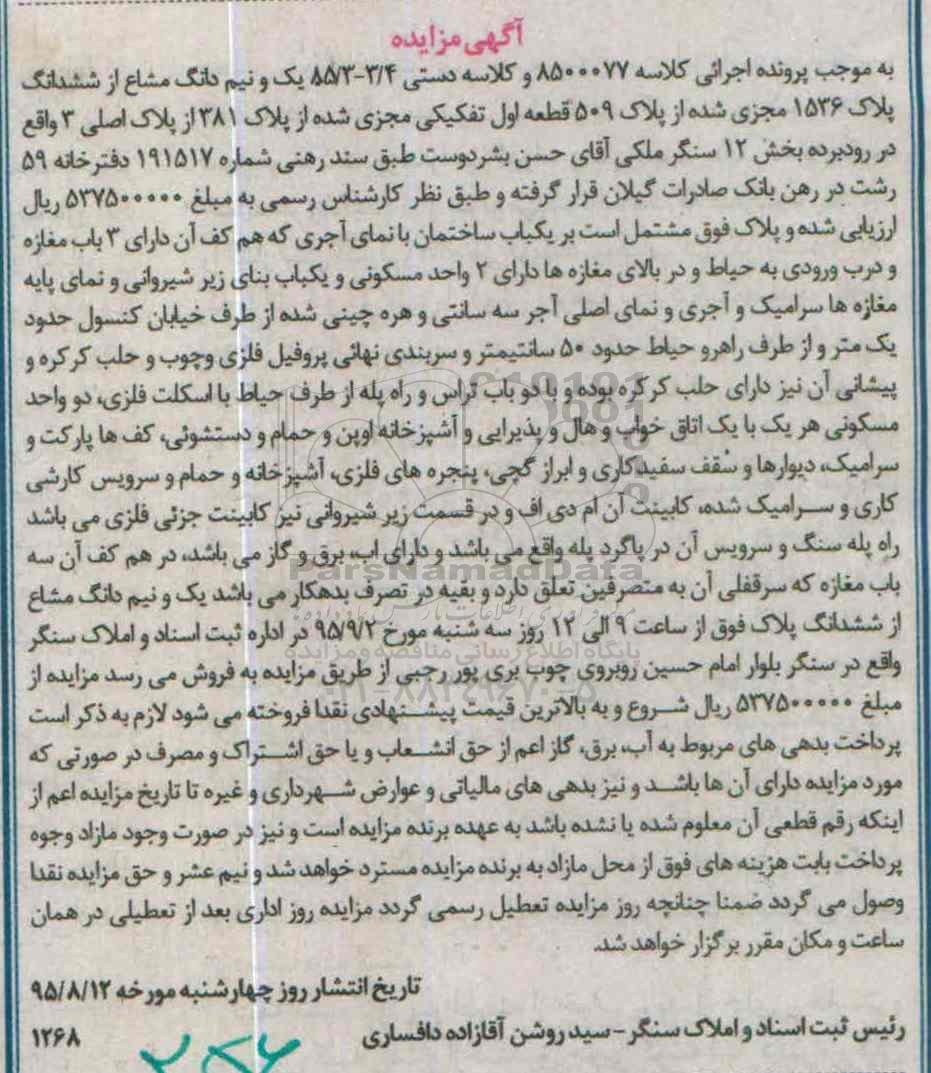 آگهی مزایده
به موجب پرونده اجرائی کلاسه ۸۵۰۰۰۷۷ و کلاسه دستی ۳/۴-۸۵/۳ یک و نیم دانگ مشاع از ششدانگ
پلاک ۱۵۳۶ مجزی شده از پلاک ۵۰۹ قطعه اول تفکیکی مجزی شده از پلاک ۳۸۱ از پلاک اصلی ۳ واقع
در رودبرده بخش ۱۲ سنگر ملکی آقای حسن بشردوست طبق سند رهنی شماره ۱۹۱۵۱۷ دفترخانه ۵۹
رشت در رهن بانک صادرات گیلان قرار گرفته و طبق نظر کارشناس رسمی به مبلغ ۵۳۷۵۰۰۰۰۰ ریال
ارزیابی شده و پلاک فوق مشتمل است بر یکباب ساختمان با نمای آجری که هم کف آن دارای ۳ باب مغازه
و درب ورودی به حیاط و در بالای مغازه ها دارای ۲ واحد مسکونی و یکباب بنای زیر شیروانی و نمای پایه
مغازه ها سرامیک و آجری و نمای اصلی آجر سه سانتی و هره چینی شده از طرف خیابان کنسول حدود
یک متر و از طرف راهرو حیاط حدود ۵۰ سانتیمتر و سربندی نهائی پروفیل فلزی وچوب و حلب کرکره و
پیشانی آن نیز دارای حلب کرکره بوده و با دو باب تراس و راه پله از طرف حیاط با اسکلت فلزی، دو واحد
مسکونی هر یک با یک اتاق خواب و هال و پذیرایی و آشپزخانه اوپن و حمام و دستشوئی، کف ها پارکت و
سرامیک، دیوارها و سقف سفیدکاری و ابراز گچی، پنجره های فلزی، آشپزخانه و حمام و سرویس کارشی
کاری و سرامیک شده، کابینت آن ام دی اف و در قسمت زیر شیروانی نیز کابینت جزئی فلزی می باشد
راه پله سنگ و سرویس آن در پاگرد پله واقع می باشد و دارای اب، برق و گاز می باشد، در هم کف آن سه
باب مغازه که سرقفلی آن به متصرفین تعلق دارد و بقیه در تصرف بدهکار می باشد یک و نیم دانگ مشاع
از ششدانگ پلاک فوق از ساعت ۹ الی ۱۲ روز سه شنبه مورخ ۹۵/۹/۲ در اداره ثبت اسناد و املاک سنگر
واقع در سنگر بلوار امام حسین روبروی چوب بری پور رجبی از طریق مزایده به فروش می رسد مزایده از
مبلغ ۵۳۷۵۰۰۰۰۰ ریال شروع و به بالاترین قیمت پیشنهادی نقدا فروخته می شود لازم به ذکر است
پرداخت بدهی های مربوط به آب، برق، گاز اعم از حق انشعاب و یا حق اشتراک و مصرف در صورتی که
مورد مزایده دارای آن ها باشد و نیز بدهی های مالیاتی و عوارض شهرداری و غیره تا تاریخ مزایده اعم از
اینکه رقم قطعی آن معلوم شده یا نشده باشد به عهده برنده مزایده است و نیز در صورت وجود مازاد وجوه
پرداخت بابت هزینه های فوق از محل مازاد به برنده مزایده مسترد خواهد شد و نیم عشر و حق مزایده نقدا
وصول می گردد ضمنا چنانچه روز مزایده تعطیل رسمی گردد مزایده روز اداری بعد از تعطیلی در همان
ساعت و مکان مقرر برگزار خواهد شد.
تاریخ انتشار روز چهارشنبه مورخه ۹۵/۸/۱۲
رئیس ثبت اسناد و املاک سنگر - سید روشن آقازاده دافساری ۱۲۶۸
ParsNamadData
پایگاه اطلاع رسانی مناقصه و مزایده
۰۲۱-۸۸۳۴۹۶۷۰-۵